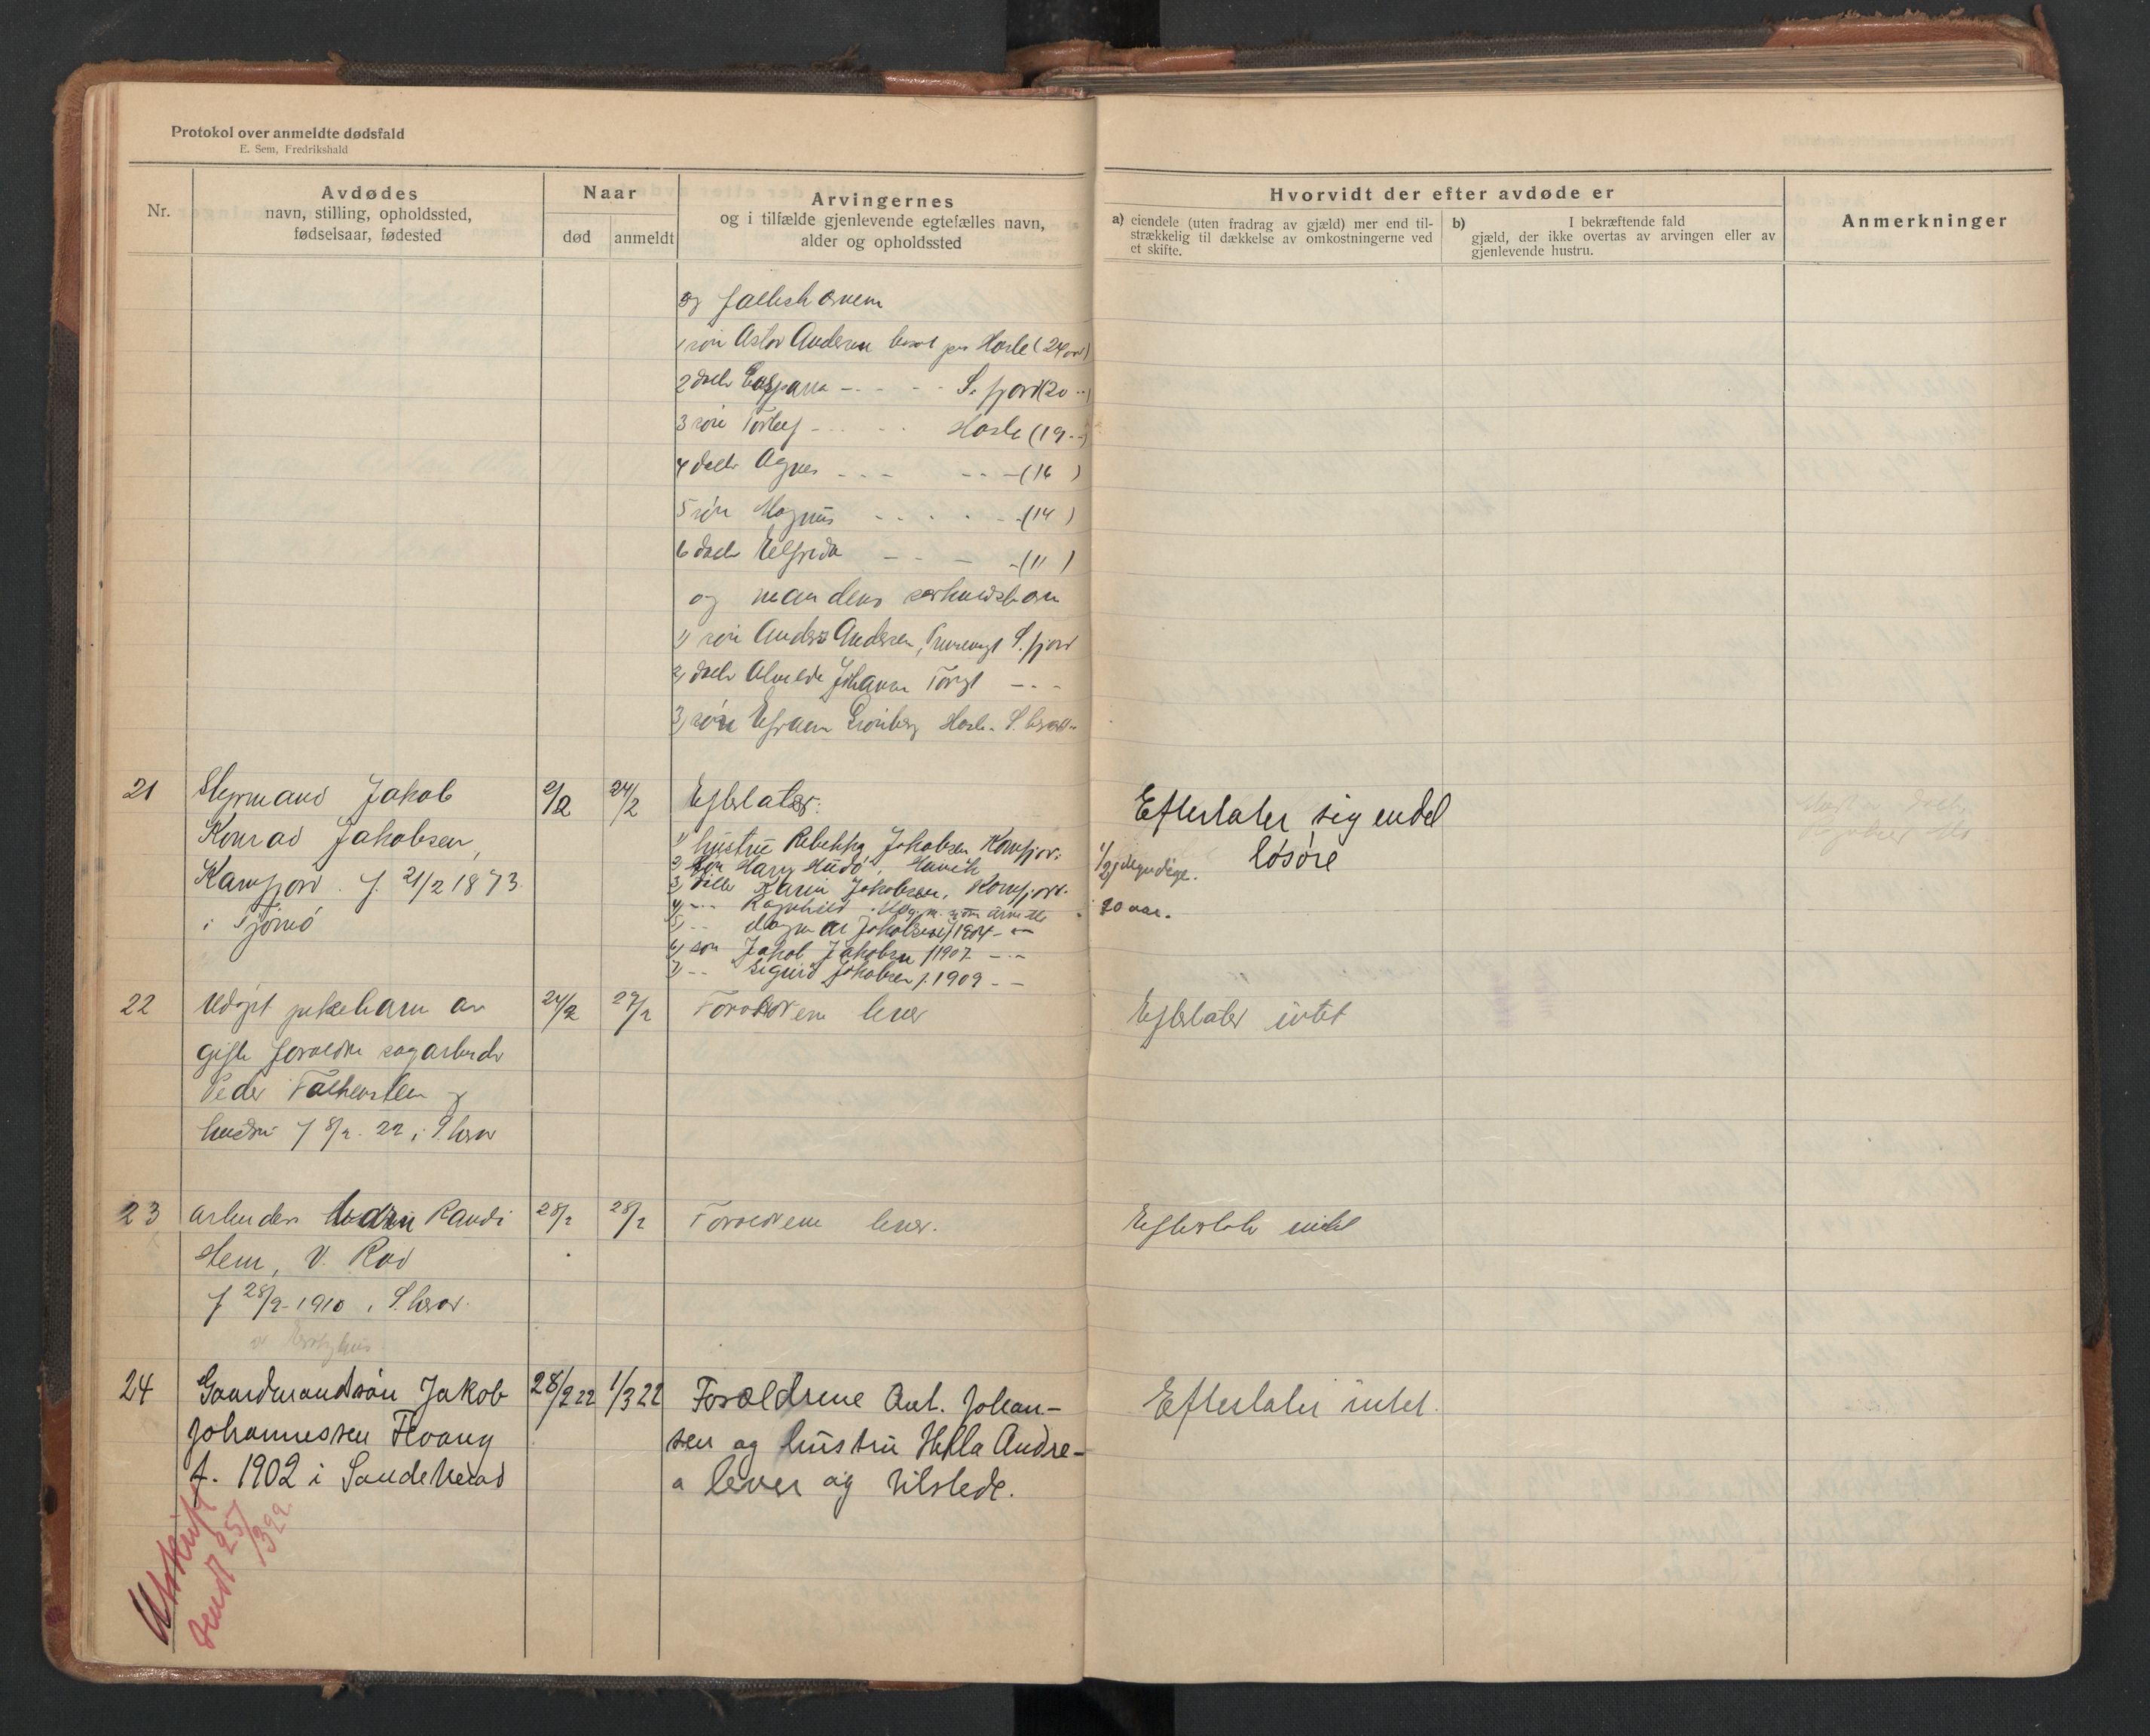 Protokol over anmeldte dødsfald
E. Sem, Fredrikshald
Nr.
Avdødes
navn, stilling, opholdssted,
fødselsaar, fødested
Naar
død
anmeldt
Arvingernes
og i tilfælde gjenlevende egtefælles navn,
alder og opholdssted
Hvorvidt der efter avdøde er
a) eiendele (uten fradrag av gjæld) mer end til-
strækkelig til dækkelse av omkostningerne ved
et skifte.
b) I bekræftende fald
gjæld, der ikke overtas av arvingen eller av
gjenlevende hustru.
Anmerkninger
og
1 søn Andersen Hasle (24 aar)
2 datr S. fjord (20 --)
3 søn Hasle (19 --)
4 datr Agnes - - - - - - (16 )
5 søn Magnus - - - - - (14 )
6 datr Elfrida - - - - (11 )
og mandens særkuldsbarn
1) søn Anders Andersen, S. fjord
2) datr Johanne - - -
3) søn Hasle
21 Styrmand Jakob
Konrad Jakobsen,
Kamfjord. f. 21/2 1873
i Tjømø
2/2
24/2
Efterlater:
1) hustru Rebekka Jakobsen Kamfjor.
2) søn Harry
3) datr Karin Jakobsen, Kamfjord.
4) -- Ragnhild
5) -- Dagmar Jakobsen f 1904 - --
6) søn Jakob Jakobsen f 1907 - --
7) -- Sigurd Jakobsen f. 1909 - -
Efterlater sig endel
løsøre
20 aar.
22 Udøpt pikebarn av
gifte foreldre sagarbeider
Peder Falkensten og
hustru f 8/2. 22 i S. herr
24/2
27/2
Foreldrene lever
Efterlater intet
23 arbeider Randi
Hem, V. Rød
f 28/9-1910 i S. herr.
28/2
28/2
Foreldrene lever.
Efterlater intet
24 Gaardmandssøn Jakob
Johannessen Hvang
f. 1902 i Sandeherad
28/2 22
1/3 22
Forældrene Ant. Johan-
sen og hustru Hella Andre-
a lever og tilstede.
Efterlater intet.
Utskrift
sendt 25/3 22